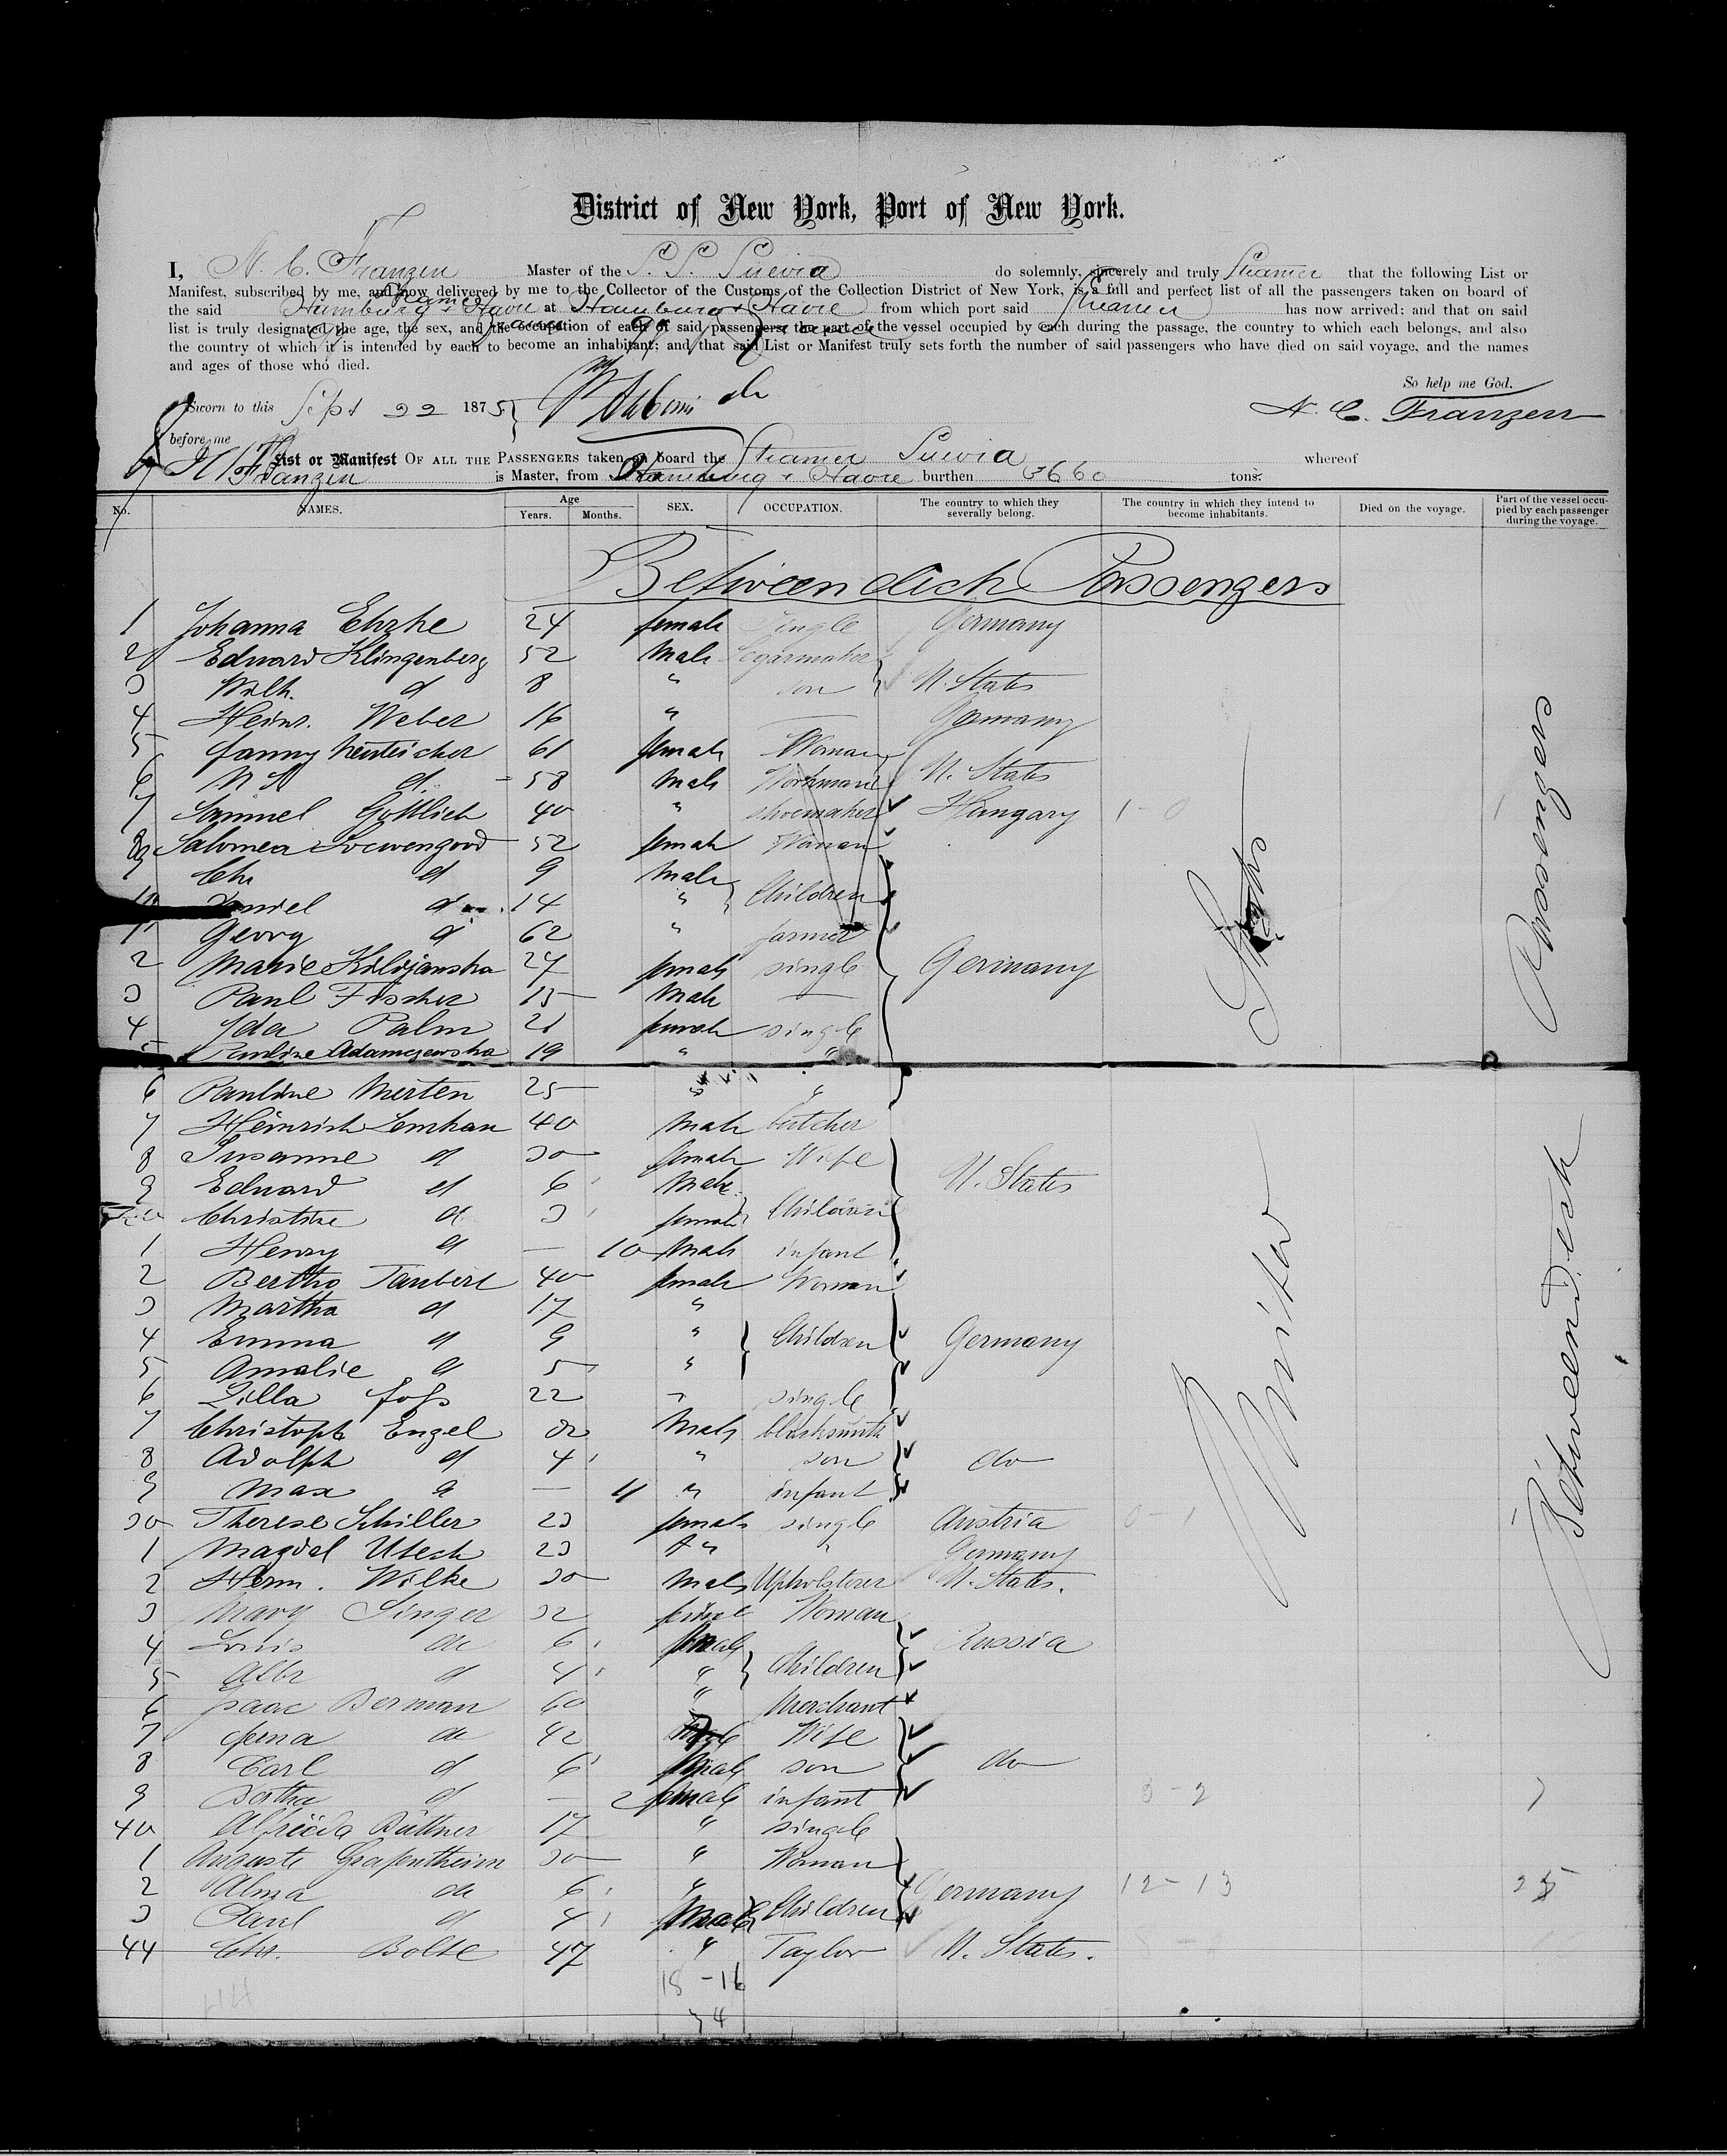 District of New York, Port of New York.
I, N. C. Franzen Master of the S. S. Suevia do solemnly, sincerely and truly Steamer that the following List or
Manifest, subscribed by me, and now delivered by me to the Collector of the Customs of the Collection District of New York, is a full and perfect list of all the passengers taken on board of
the said Steamer Hamburg & Havre at Hamburg & Havre from which port said Steamer has now arrived; and that on said
list is truly designated the age, the sex, and the occupation of each of said passengers, the part of the vessel occupied by each during the passage, the country to which each belongs, and also
the country of which it is intended by each to become an inhabitant; and that said List or Manifest truly sets forth the number of said passengers who have died on said voyage, and the names
and ages of those who died.
So help me God.
Sworn to this Sept 22 1875
N. C. Franzen
before me
List or Manifest OF ALL THE PASSENGERS taken on board the Steamer Suevia whereof
Franzen is Master, from Hamburg & Havre burthen 3660 tons.
No. NAMES. Age Years. Months. SEX. OCCUPATION. The country to which they severally belong. The country in which they intend to become inhabitants. Died on the voyage. Part of the vessel occupied by each passenger during the voyage.
Between deck Passengers
1 Johanna Ehrke 24 female single Germany
2 Eduard Klingenberg 52 Male Segarmaker
3 Wilh. d 8 " son U. States
4 Heinr. Weber 16 " — Germany
5 fanny 61 female Woman
6 d. 58 male Workman U. States
7 Samuel Gottlieb 40 " shoemaker Hungary 1-0 1
8 Salomea Loewengood 52 female Woman
9 Chr d 9 Male
10 d 14 " Children
11 Georg d 62 " farmer
2 Marie Kilijanska 27 female single Germany
3 Paul Fischer 15 Male —
4 Ida Palm 21 female single
5 Pauline Adamczewska 19 " "
6 Pauline Merten 25 " "
7 Heinrich Lemhan 40 male butcher
8 Susanne d 30 female Wife
9 Eduard d 6 Male U. States
20 Christine d 3 female Children
1 Henry d — 10 Male infant
2 Bertha Taubert 40 female Woman
3 Martha d 17 "
4 Emma d 9 " Children Germany
5 Amalie d 5 "
6 Lilla foss 22 " single
7 Christoph Engel 32 Male blacksmith
8 Adolph d 4 " son do
9 Max d — 11 " infant
30 Therese Schiller 23 female single Austria 0-1
1 Magdal Utech 23 " " Germany
2 Herm. Wilke 30 Male Upholsterer U. States.
3 Mary Singer 32 female Woman
4 Louis do 6 Male Russia
5 Albr d 4 " Children
6 Isaac Berman 60 " Merchant
7 do 42 Wife
8 Carl d 6 Male son do
9 Bertha d — 2 female infant 3-2
40 Alfrieda Büttner 17 " single
1 Auguste Grapentheim 30 " Woman
2 Alma do 6 " Children Germany 12-13
3 Paul d 4 Male
44 Chr. Bolte 47 " Taylor U. States.
18-16
34
United States
Between Deck Passengers